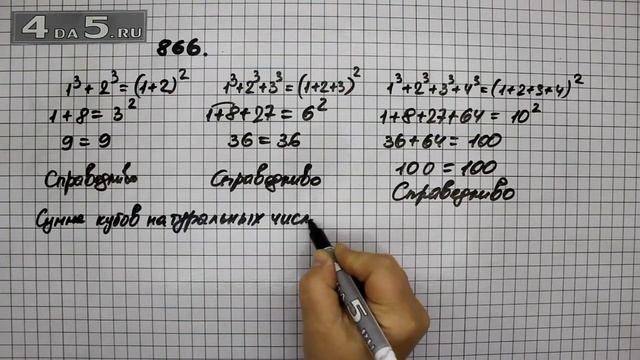 4 DA 5.RU
866.
1³+2³=(1+2)²
1+8=3²
9=9
Справедливо
1³+2³+3³=(1+2+3)²
1+8+27=6²
36=36
Справедливо
1³+2³+3³+4³=(1+2+3+4)²
1+8+27+64=10²
36+64=100
100=100
Справедливо
Сумма кубов натуральных числ